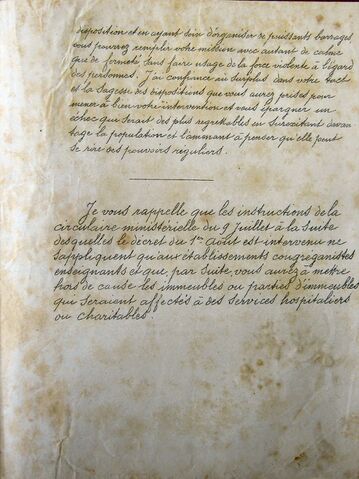 disposition et en ayant soin d'organiser de puissants barrages
vous pourrez remplir votre mission avec autant de calme
que de fermeté sans faire usage de la force violente à l'égard
des personnes. J'ai confiance au surplus dans votre tact
et la sagesse des dispositions que vous aurez prises pour
mener à bien votre intervention et vous épargner un
échec qui serait des plus regrettables en surexcitant davan
tage la population et l'ammenant à penser qu'elle peut
se rire des pouvoirs réguliers.
Je vous rappelle que les instructions de la
circulaire ministérielle du 9 juillet à la suite
desquelles le décret du 1er Août est intervenu ne
s'appliquent qu'aux établissements congréganistes
enseignants et que, par suite, vous aurez à mettre
hors de cause les immeubles ou parties d'immeubles
qui seraient affectés à des services hospitaliers
ou charitables.